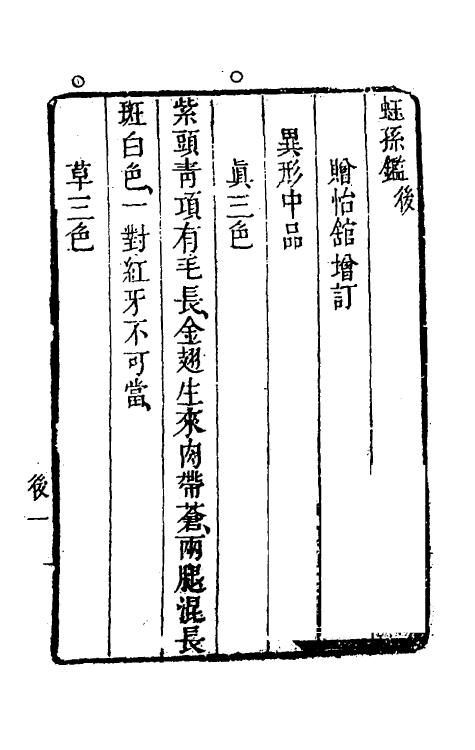 蚟孫鑑後
贈怡舘增訂
異形中品
眞三色
紫頭靑項有毛長、金翅生來肉帶蒼、兩腿混長
斑白色、一對紅牙不可當、
草三色
後一